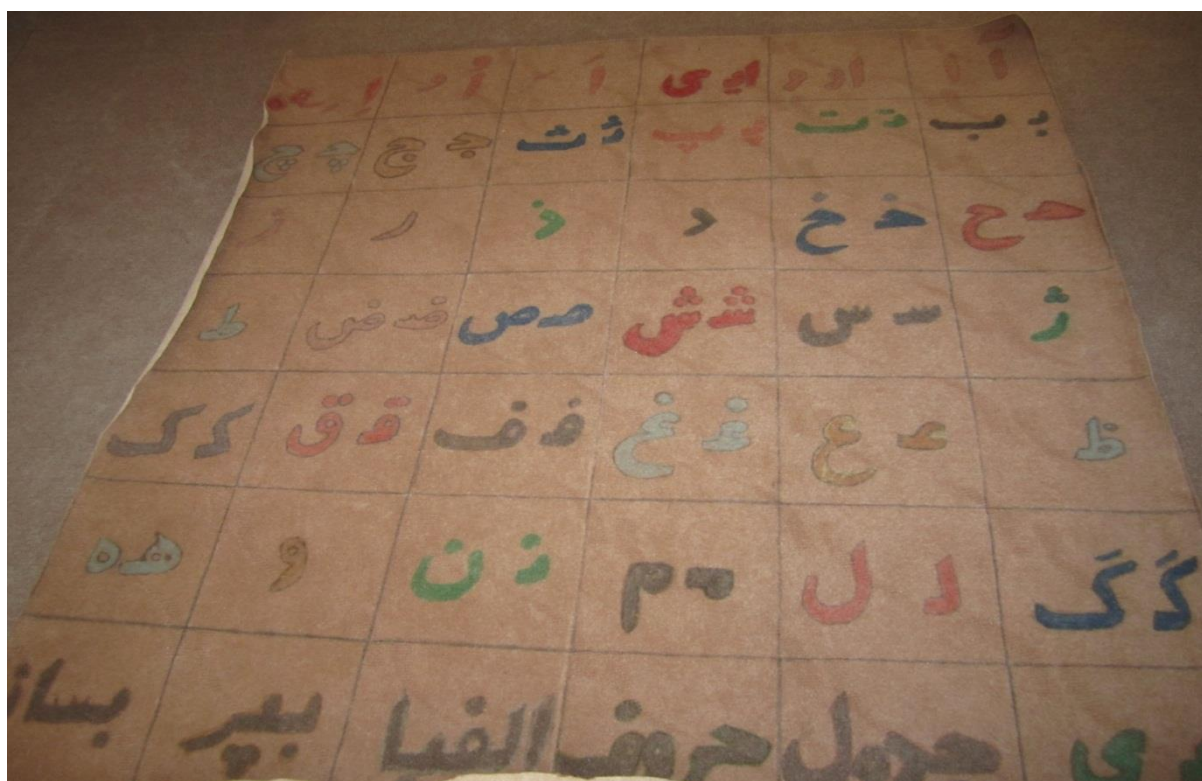 آ ا او و ایـ ی اَ
بـ ب تـ ت پـ پ ثـ ث جـ ج چـ چ
حـ ح خـ خ د ذ ر ز
ژ سـ س شـ ش صـ ص ضـ ض ط
ظ عـ ع غـ غ فـ ف قـ ق کـ ک
گـ گ لـ ل مـ م نـ ن و هـ ه
ی جدول حروف الفبا ببر